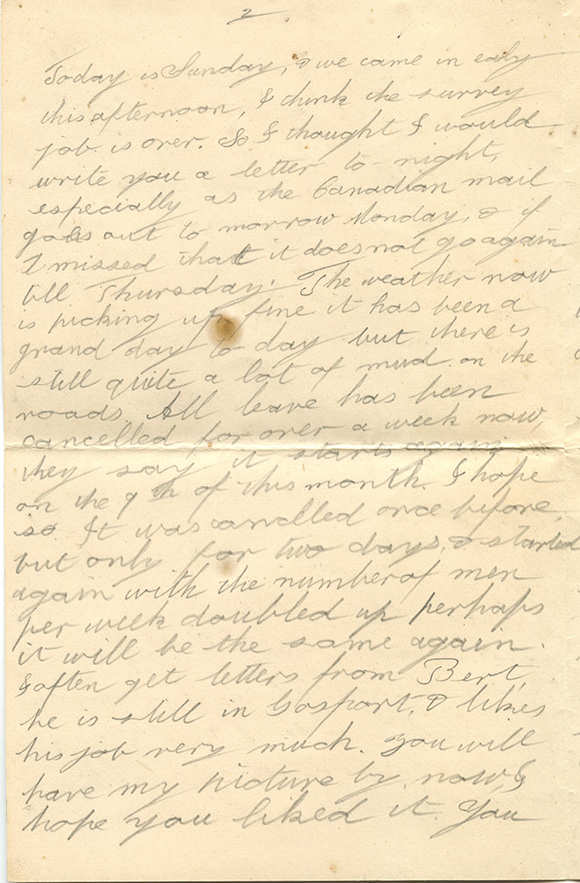 2.
Today is Sunday, & we came in early
this afternoon, I think the survey
job is over. So I thought I would
write you a letter to-night,
especially as the Canadian mail
goes out to morrow Monday, & if
I missed that it does not go again
till Thursday. The weather now
is picking up fine it has been a
grand day to day but there is
still quite a lot of mud on the
roads. All leave has been
cancelled for over a week now,
they say it starts again
on the 9th of this month. I hope
so It was cancelled once before,
but only for two days, & started
again with the number of men
per week doubled up perhaps
it will be the same again.
I often get letters from Bert,
he is still in Gosport, & likes
his job very much. You will
have my picture by now, I
hope you liked it. You